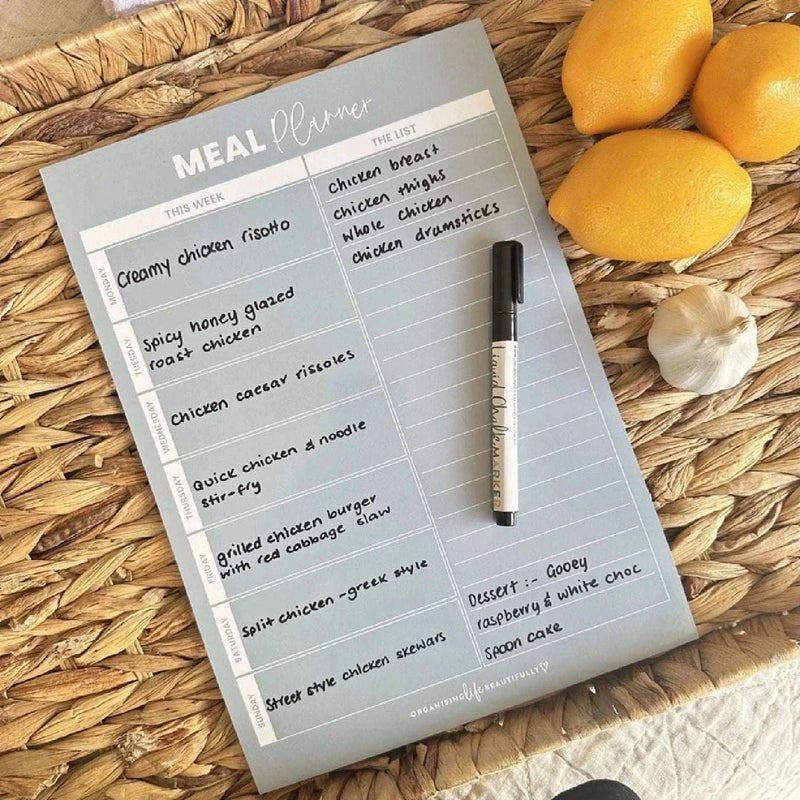 MEAL Planner
THIS WEEK
MONDAY
Creamy chicken risotto
TUESDAY
spicy honey glazed
roast chicken
WEDNESDAY
Chicken caesar rissoles
THURSDAY
Quick chicken & noodle
stir-fry
FRIDAY
grilled chicken burger
with red cabbage slaw
SATURDAY
Split chicken - greek style
SUNDAY
Street style chicken skewars
THE LIST
Chicken breast
Chicken thighs
Whole chicken
chicken dramsticks
Dessert :- Gooey
raspberry & white choc
Spoon cake
Liquid Chalk MARKER
ORGANISING life BEAUTIFULLY